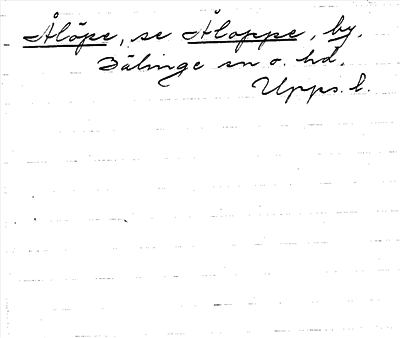 Ålöpe, se Åloppe, by,
Bälinge sn o. hd,
Upps. l.